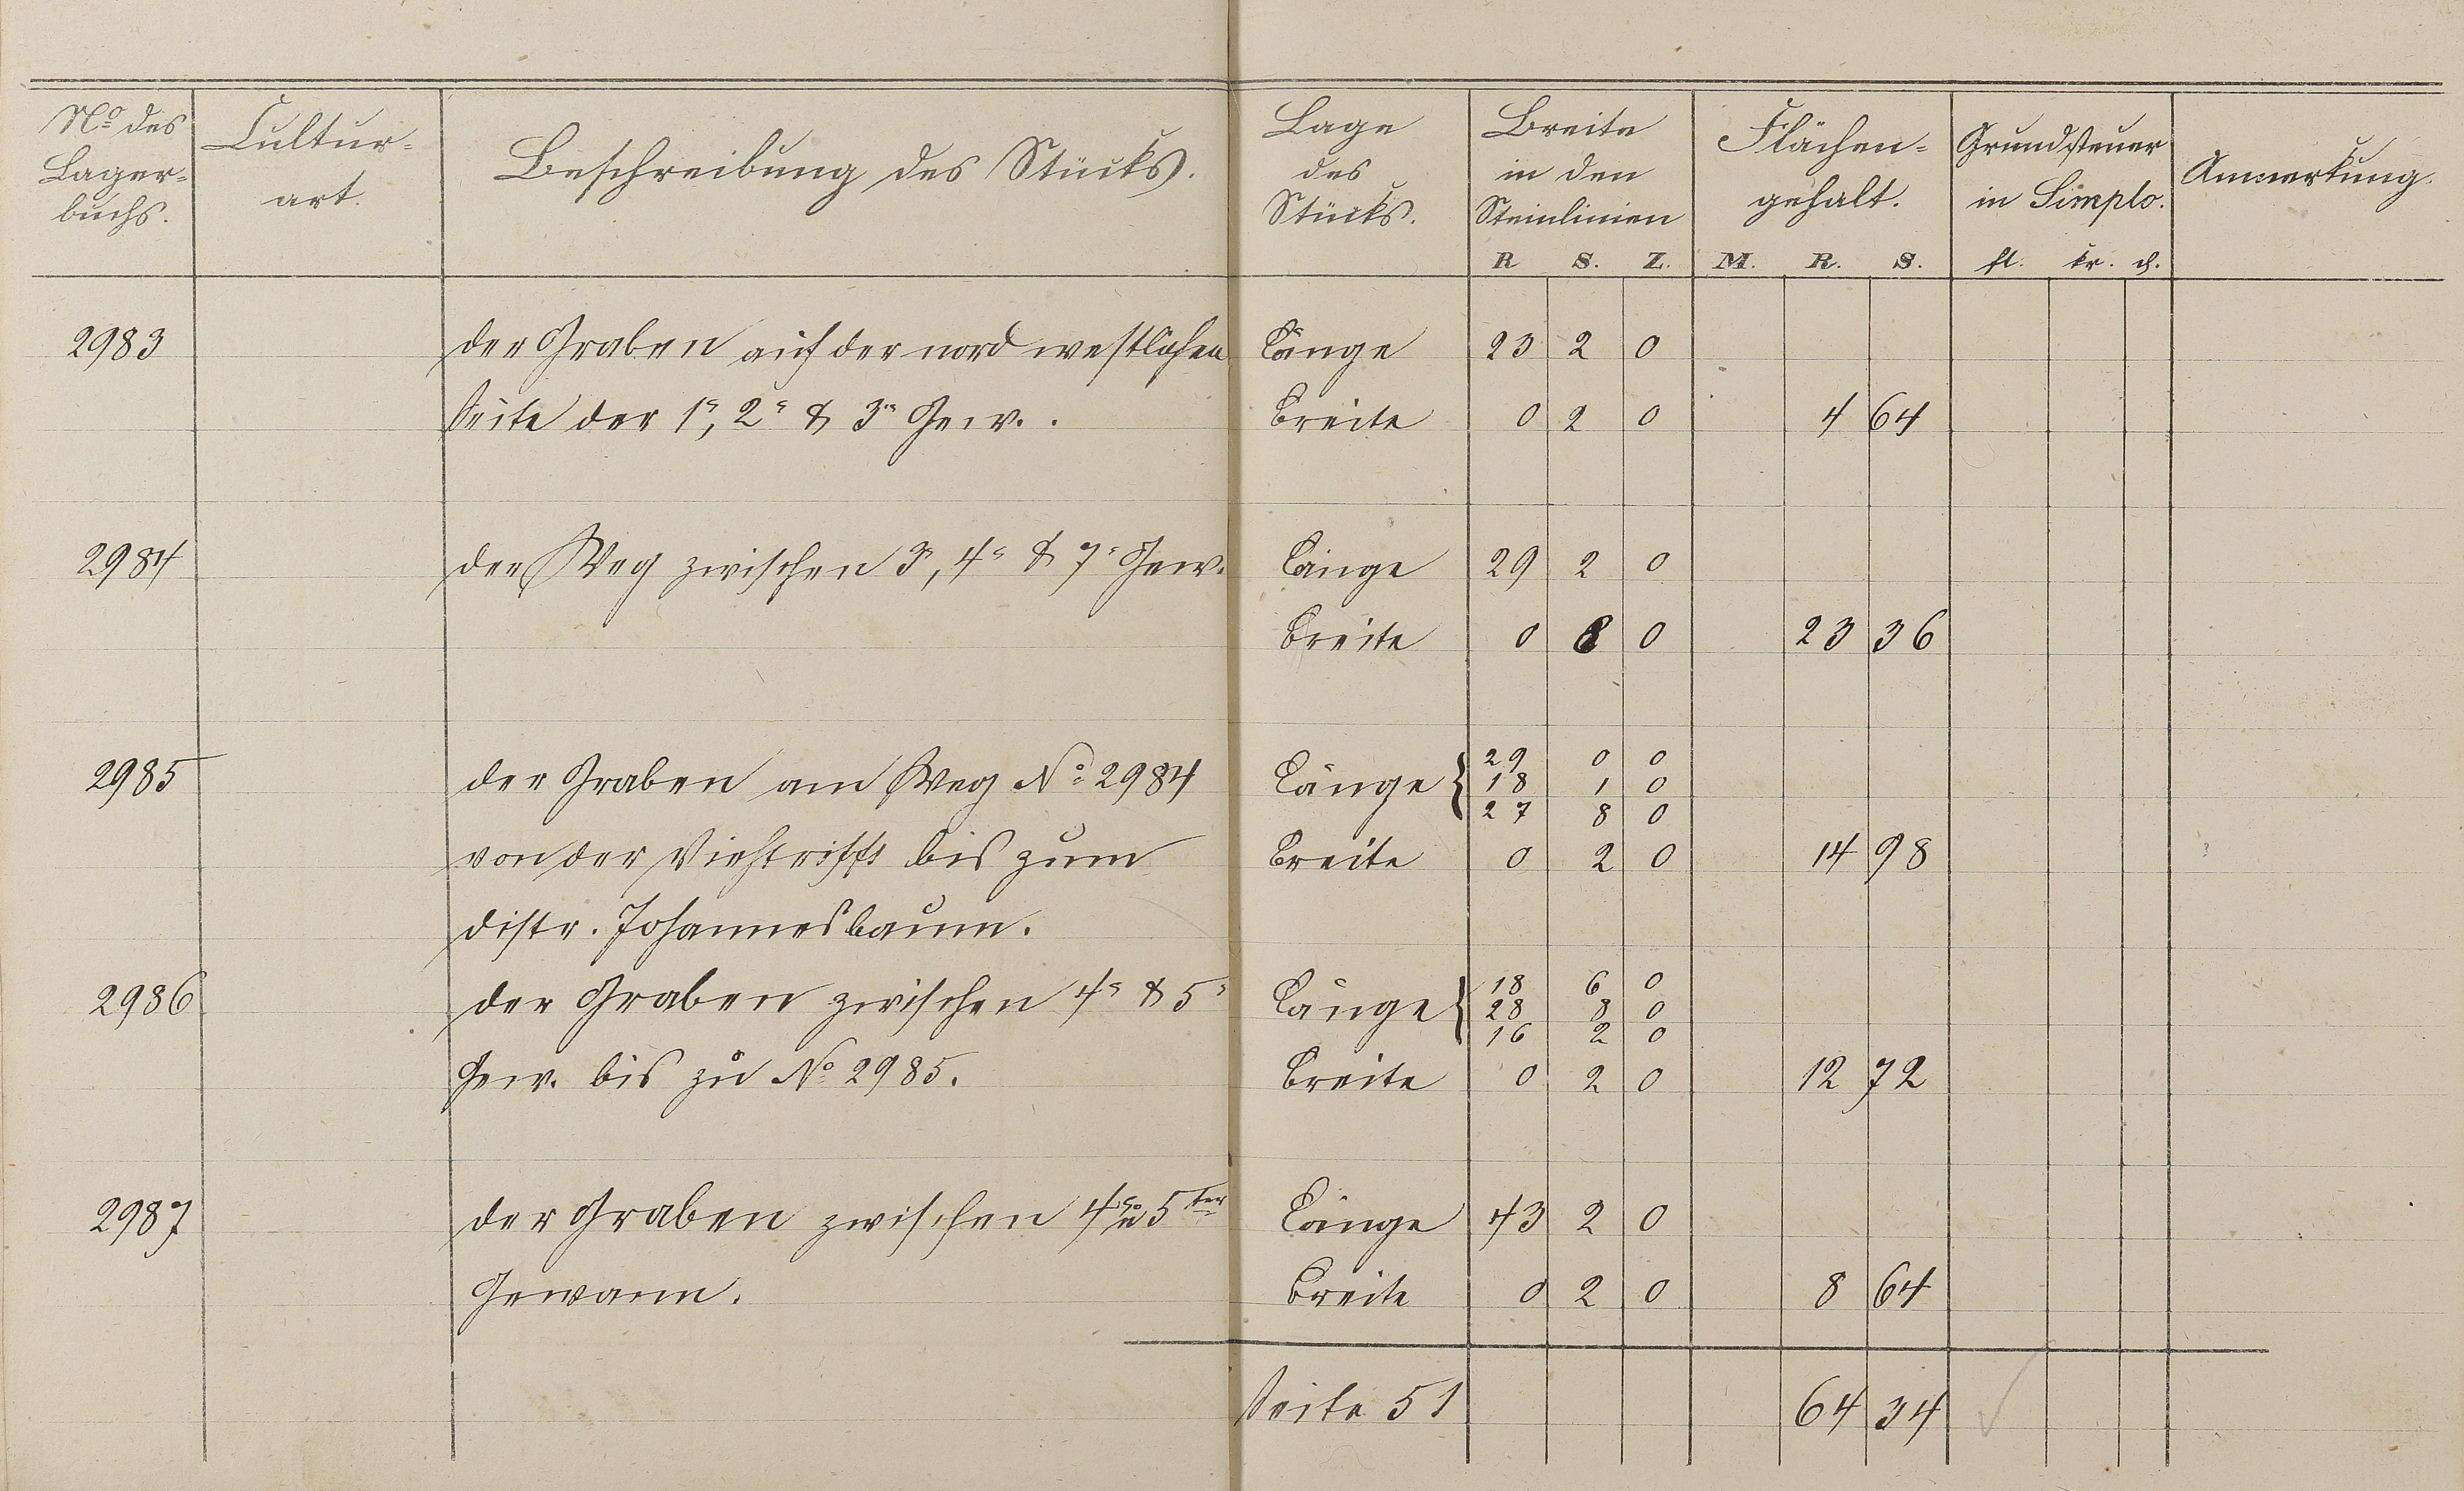 No des Lager= buchs.
Cultur= art.
Beschreibung des Stücks.
Lage des Stücks.
Breite in den Steinlinien
R S. Z.
Flächen= gehalt.
M. R. S.
Grundsteuer in Simplo.
fl. kr. d.
Anmerkung.
2983 der Graben auf der nord westlichen Länge 23 2 0
Seite der 1r, 2r & 3r Gew. Breite 0 2 0 4 64
2984 der Weg zwischen 3r, 4r & 7r Gew. Länge 29 2 0
Breite 0 8 0 23 36
2985 der Graben am Weg No 2984 Länge { 29 0 0
18 1 0
27 8 0
von der Viehtrifft bis zum Breite 0 2 0 14 98
distr. Johannesbaum.
2986 der Graben zwischen 4r & 5r Länge { 18 6 0
28 8 0
16 2 0
Gew. bis zu No 2985. Breite 0 2 0 12 72
2987 der Graben zwischen 4r u 5ter Länge 43 2 0
Gewann. Breite 0 2 0 8 64
Seite 51 64 34